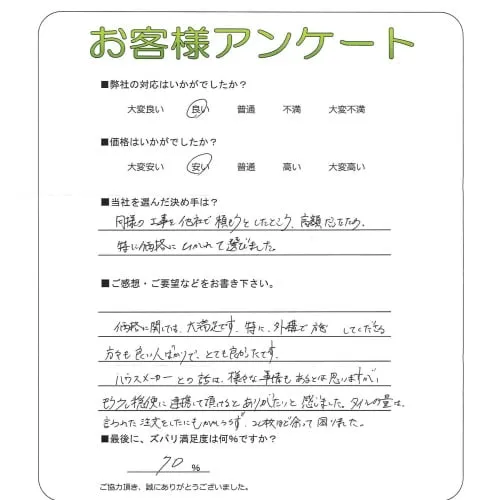 お客様アンケート
■弊社の対応はいかがでしたか?
大変良い 良い 普通 不満 大変不満
■価格はいかがでしたか?
大変安い 安い 普通 高い 大変高い
■当社を選んだ決め手は?
同様の工事を他社で頼もうとしたところ、高額だったため、
特に価格にひかれて選びました。
■ご感想・ご要望などをお書き下さい。
価格に関しては、大満足です。特に、外構で してくださる
方々も良い人ばかりで、とても良かったです。
ハウスメーカーとの話は、様々な事情もあるとは思いますが、
もう少し機便に連携して頂けるとありがたいと感じました。タイルの量は、
言われた注文をしたにもかかわらず、20枚ほど余って困りました。
■最後に、ズバリ満足度は何%ですか?
70 %
ご協力頂き、誠にありがとうございました。